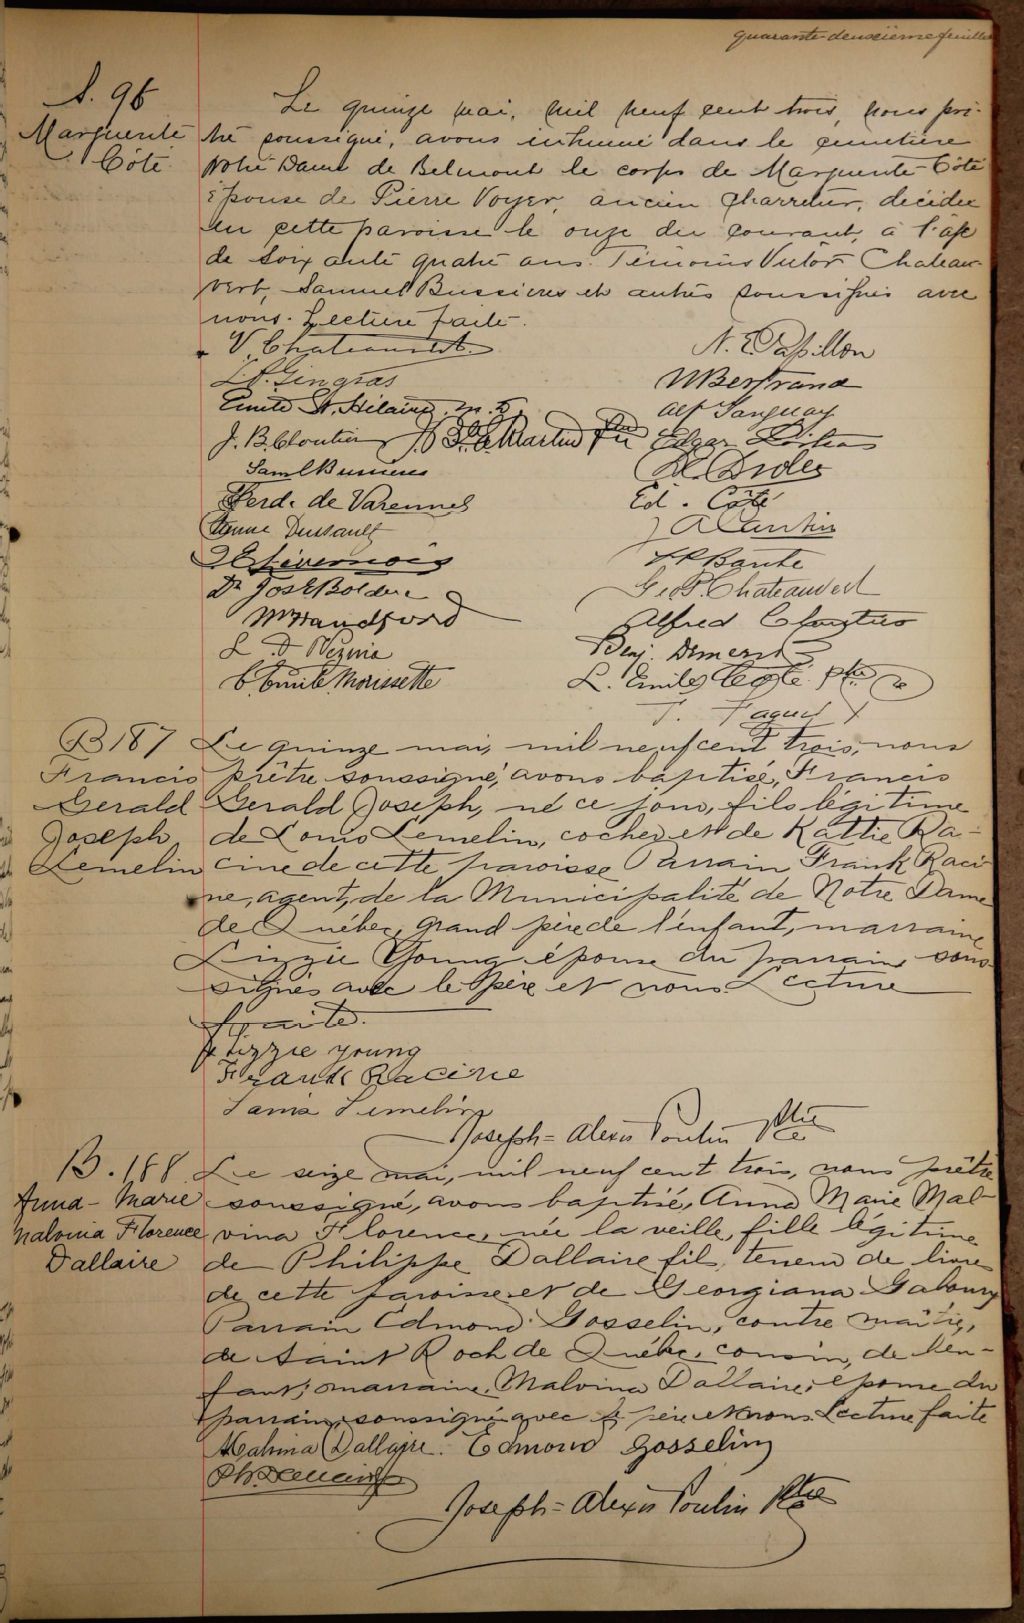 quarante-deuxième feuille
S. 96
Marguerite
Côté
Le quinze mai, mil neuf cent trois, nous prê-
tre soussigné, avons inhumé dans le cimetière
Notre Dame de Belmont le corps de Marguerite Côté
Epouse de Pierre Voyer, ancien charretier, décédée
en cette paroisse le onze du courant, à l'âge
de soixante quatre ans. Témoins Victor Chateau-
vert, Samuel Bussieres et autres soussignés avec
nous. Lecture faite.
V. Chateauvert. N. E. Papillon
Gingras Bertrand
Emile St. Hilaire, Alf Tanguay
J. B. Cloutier Edgar
Saml Bussieres
Ferd. de Varennes Ed. Côté
Dussault
Livernois
Dr Jos E Bolduc Geo P. Chateauvert
Handford Alfred Cloutier
L. D. Benj. Demers
C. Emile Morissette L. Emile Côté Ptre
B 187
Francis
Gerald
Joseph
Lemelin
Le quinze mai, mil neuf cent trois, nous
prêtre soussigné, avons baptisé, Francis
Gerald Joseph, né ce jour, fils légitime
de Louis Lemelin, cocher et de Kattie Ra-
cine de cette paroisse Parrain Frank Raci-
ne, agent, de la Municipalité de Notre Dame
de Québec, grand père de l'enfant, marraine
Lizzie Young épouse du parrain, sous-
signés avec le père et nous. Lecture
faite.
Lizzie Young
Frank Racine
Lemelin
Joseph-Alexis Poulin Ptre
B. 188
Anna-Marie
Malvina Florence
Dallaire
Le seize mai, mil neuf cent trois, nous prêtre
soussigné, avons baptisé, Anna Marie Mal-
vina Florence, née la veille, fille légitime
de Philippe Dallaire fils, teneur de livres
de cette paroisse et de Georgiana Gaboury
Parrain Edmond Gosselin, contre maître,
de Saint Roch de Québec, cousin, de l'en-
fant; marraine, Malvina Dallaire, épouse du
parrain, soussigné avec le père et nous Lecture faite
Malvina Dallaire. Edmond Gosselin
Ph. Dallaire
Joseph-Alexis Poulin Ptre